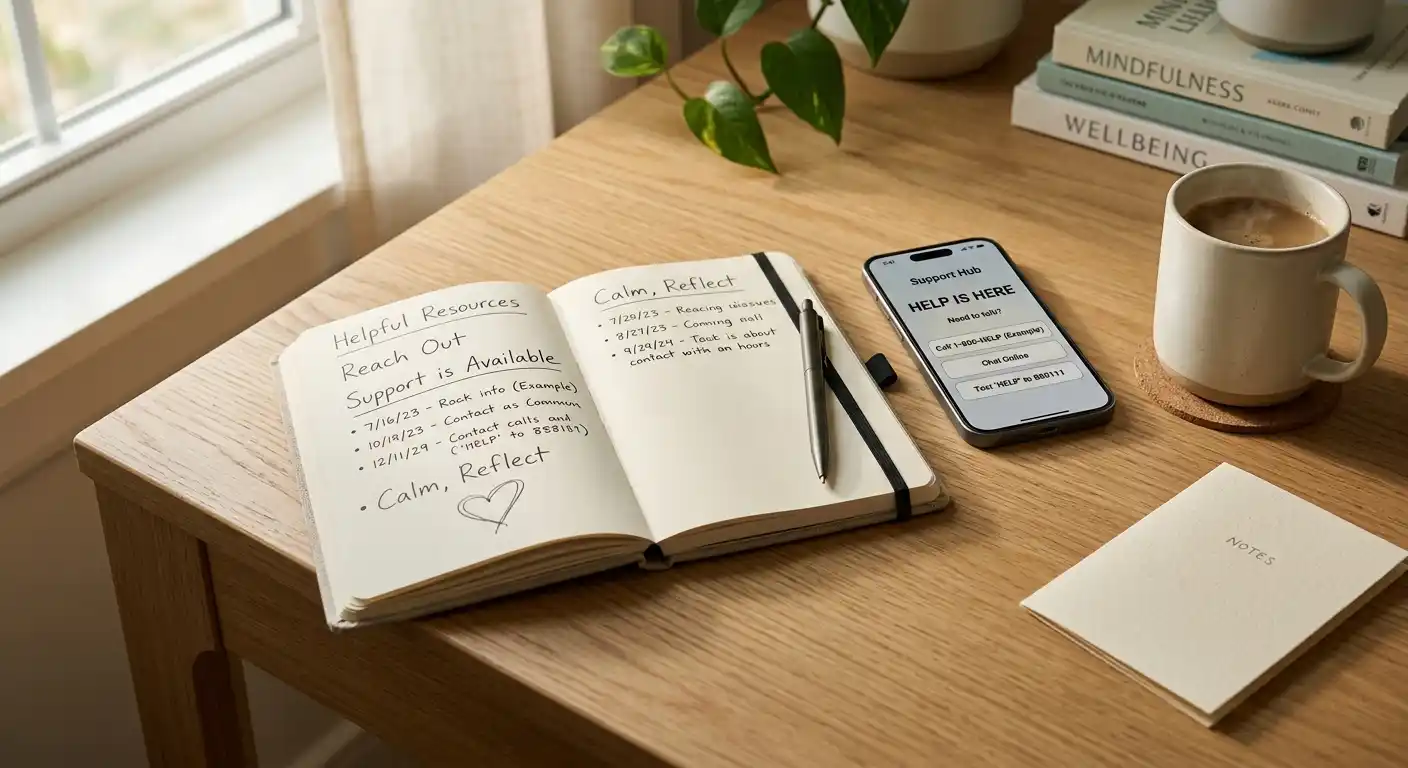 Helpful Resources
Reach Out
Support is Available
• 7/16/23 - Rock info (Example)
• 10/18/23 - Contact as Commun
• 12/11/29 - Contact calls and
("HELP" to 888187)
• Calm, Reflect
Calm, Reflect
• 7/29/23 - Reacing
• 8/27/23 - Coming
• 9/29/24 - Tack is about
contact with an hours
Support Hub
HELP IS HERE
Need to talk?
Call 1-800-HELP (Example)
Chat Online
Text "HELP" to 880111
MINDFULNESS
WELLBEING
NOTES